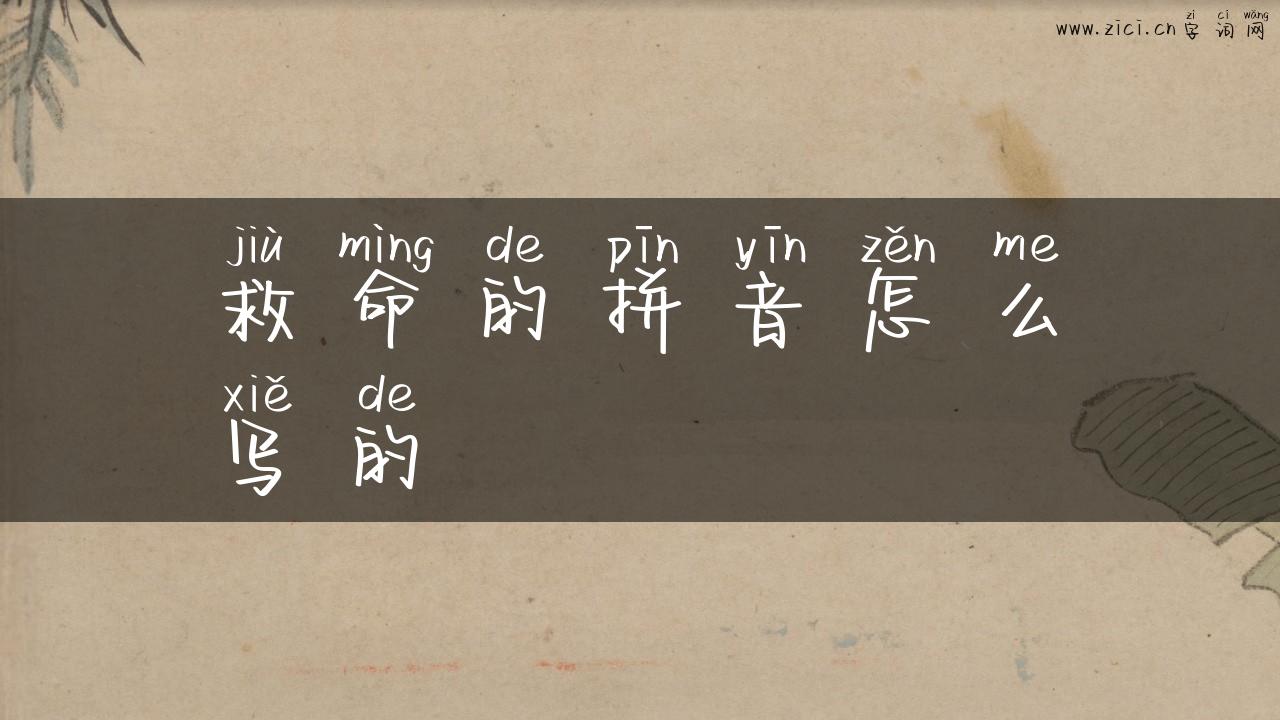 zì cí wǎng
www.zici.cn 字词网
jiù mìng de pīn yīn zěn me
救命的拼音怎么
xiě de
写的